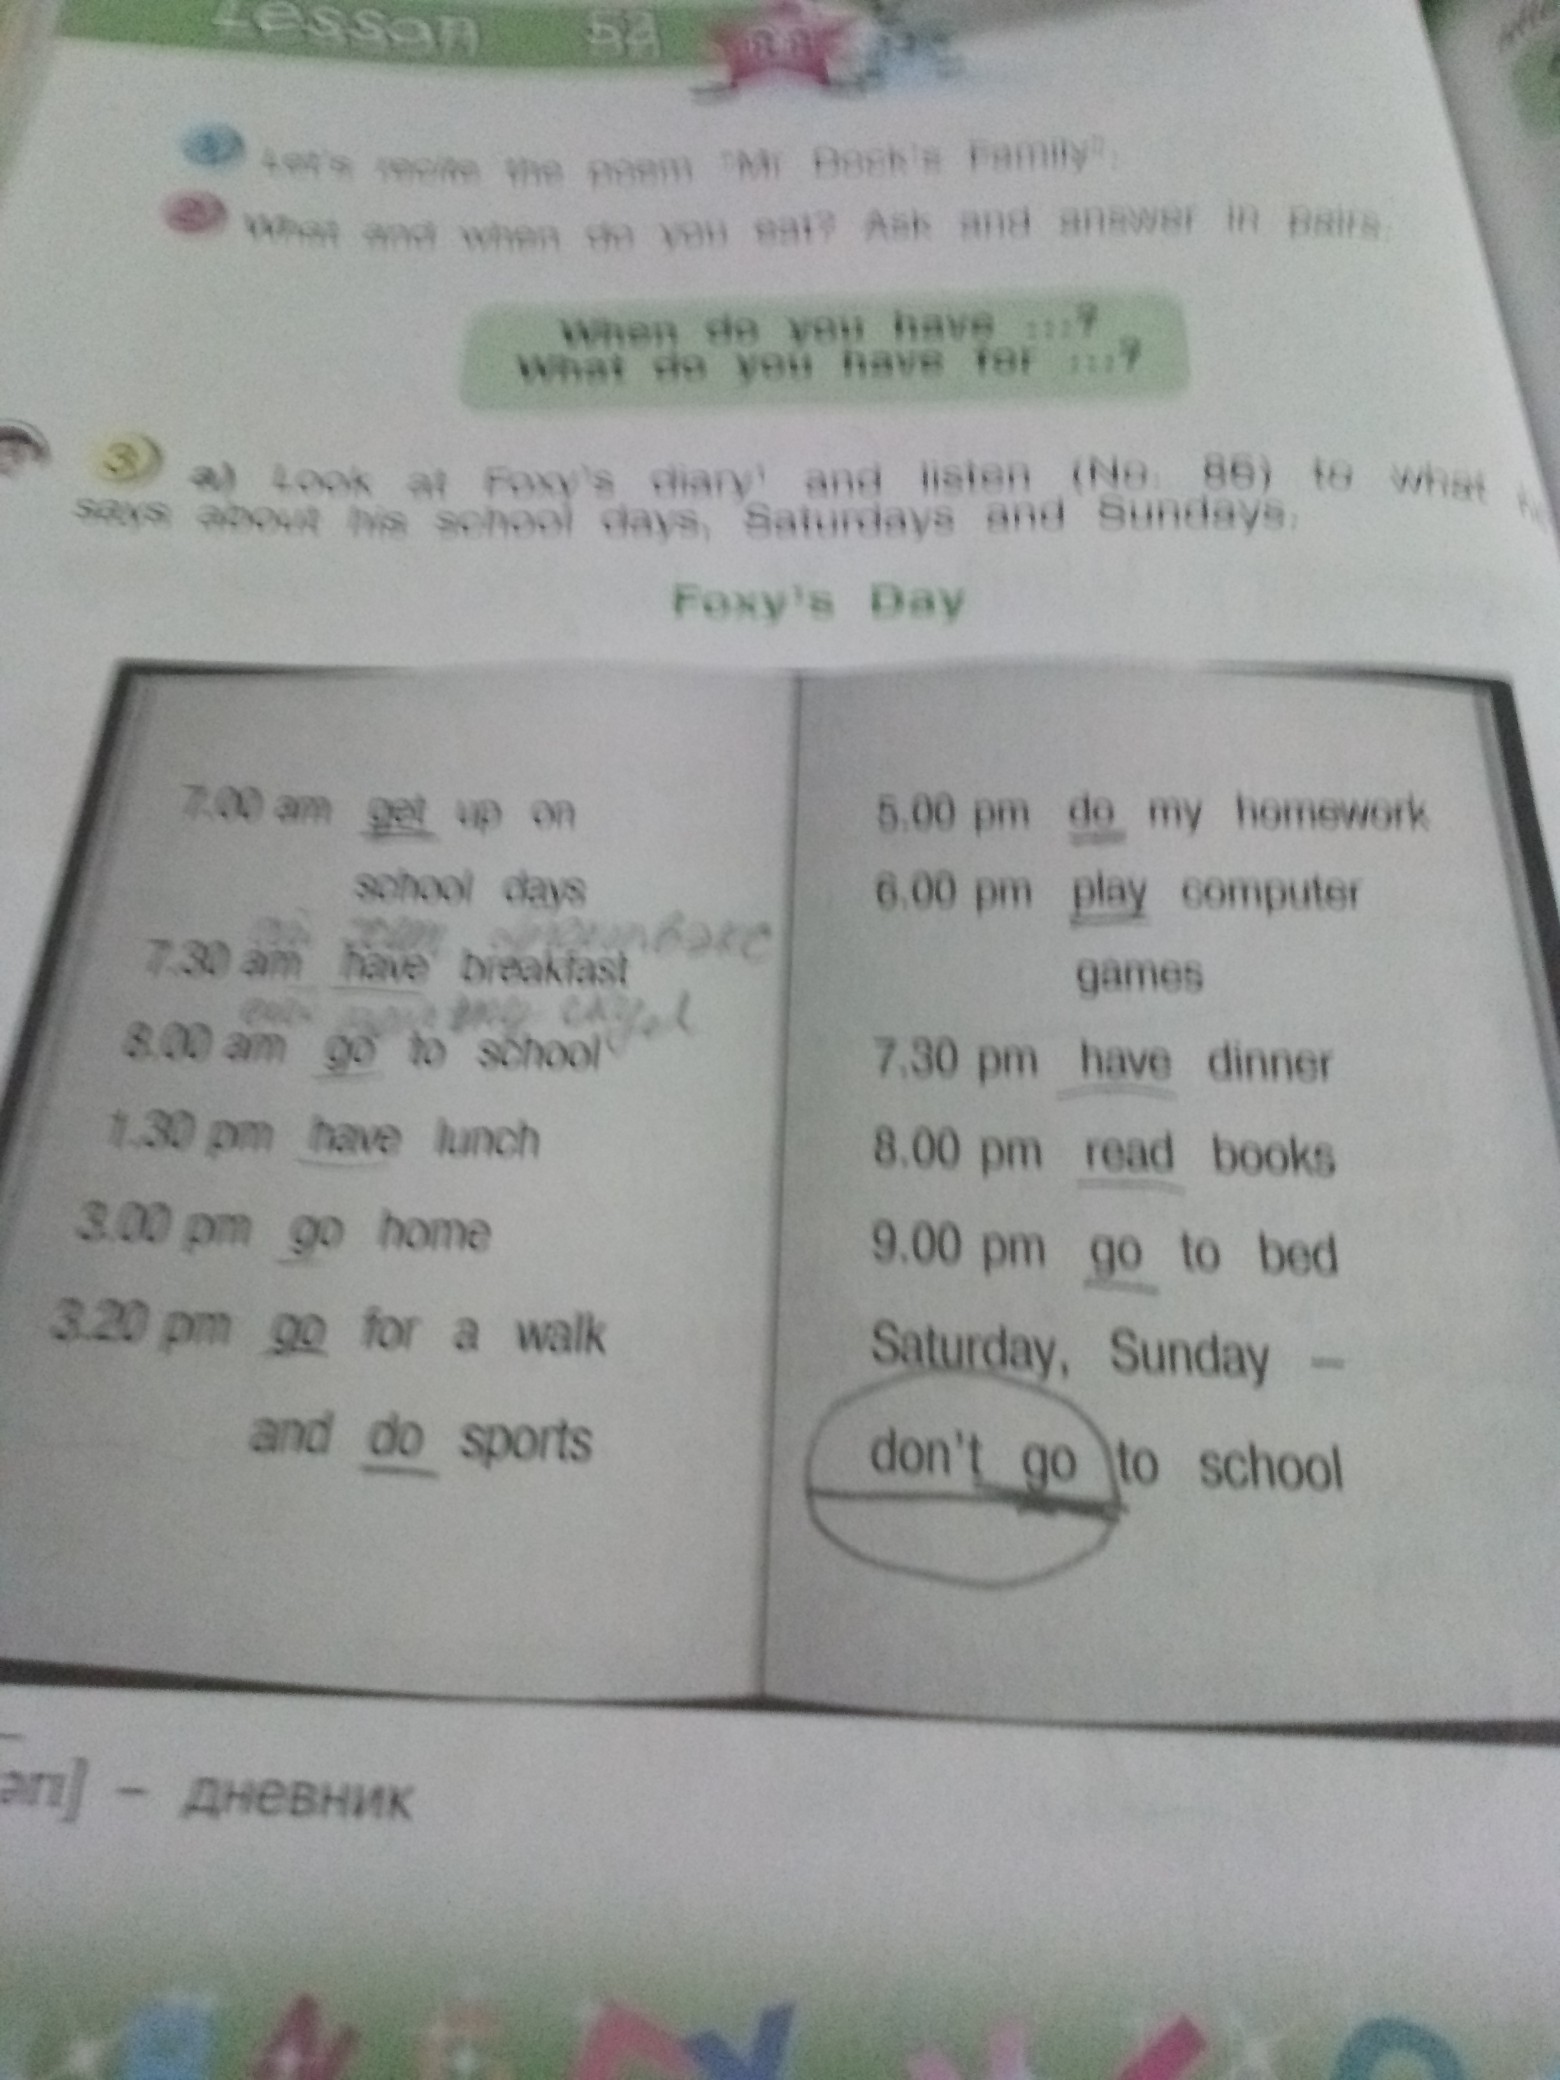 Lesson 52
1 Let's recite the poem "Mr Dock's Family".
2 What and when do you eat? Ask and answer in pairs.
When do you have ...?
What do you have for ...?
3 a) Look at Foxy's diary¹ and listen (No. 86) to what
says about his school days, Saturdays and Sundays.
Foxy's Day
7.00 am get up on
school days
7.30 am have breakfast
8.00 am go to school
1.30 pm have lunch
3.00 pm go home
3.20 pm go for a walk
and do sports
5.00 pm do my homework
6.00 pm play computer
games
7.30 pm have dinner
8.00 pm read books
9.00 pm go to bed
Saturday, Sunday –
don't go to school
ərı] – дневник